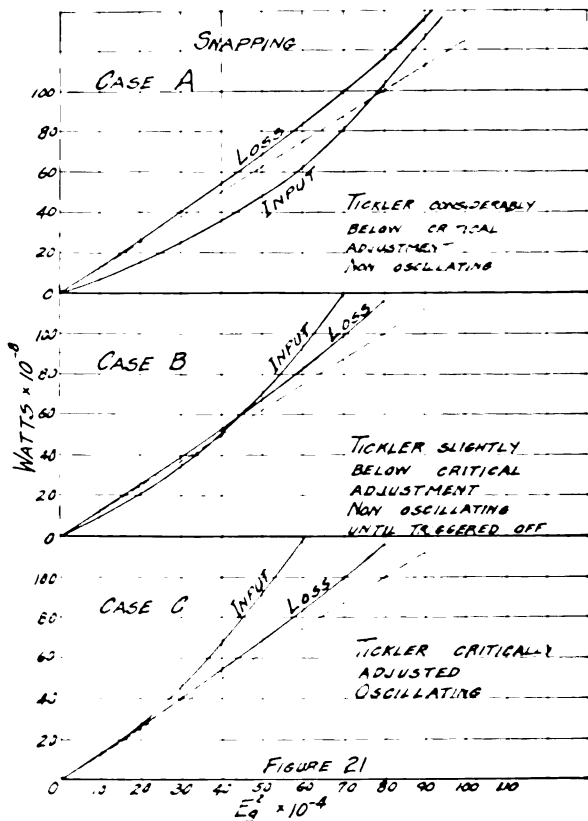 SNAPPING
CASE A
100
80
60
40
20
0
LOSS
INPUT
TICKLER CONSIDERABLY
BELOW CRITICAL
ADJUSTMENT
NON OSCILLATING
CASE B
100
80
60
40
20
0
INPUT
LOSS
WATTS × 10⁻⁸
TICKLER SLIGHTLY
BELOW CRITICAL
ADJUSTMENT
NON OSCILLATING
UNTIL TRIGGERED OFF
CASE C
100
80
60
40
20
0
INPUT
LOSS
TICKLER CRITICALLY
ADJUSTED
OSCILLATING
FIGURE 21
10 20 30 40 50 60 70 80 90 100 110
E_g² × 10⁻⁴